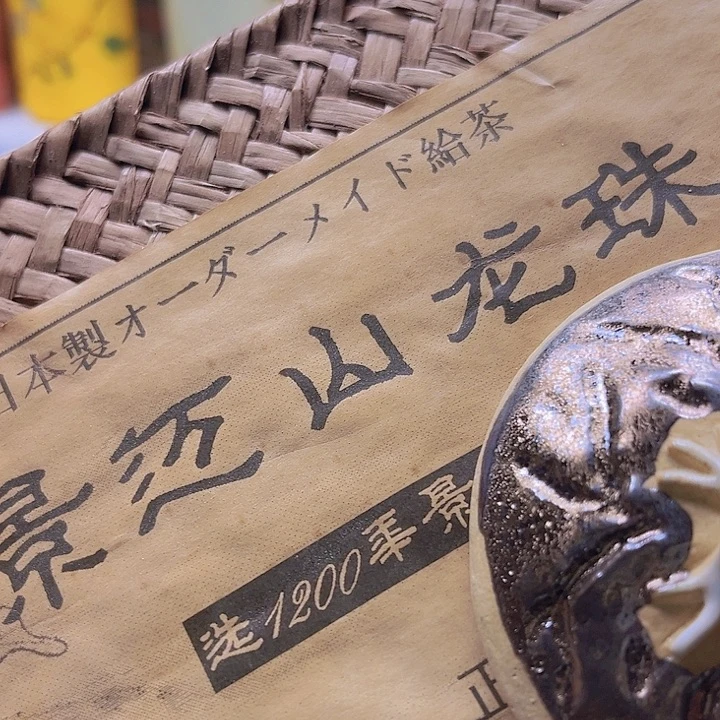 日本製オーダーメイド給茶
景迈山龙珠
选1200年景
正